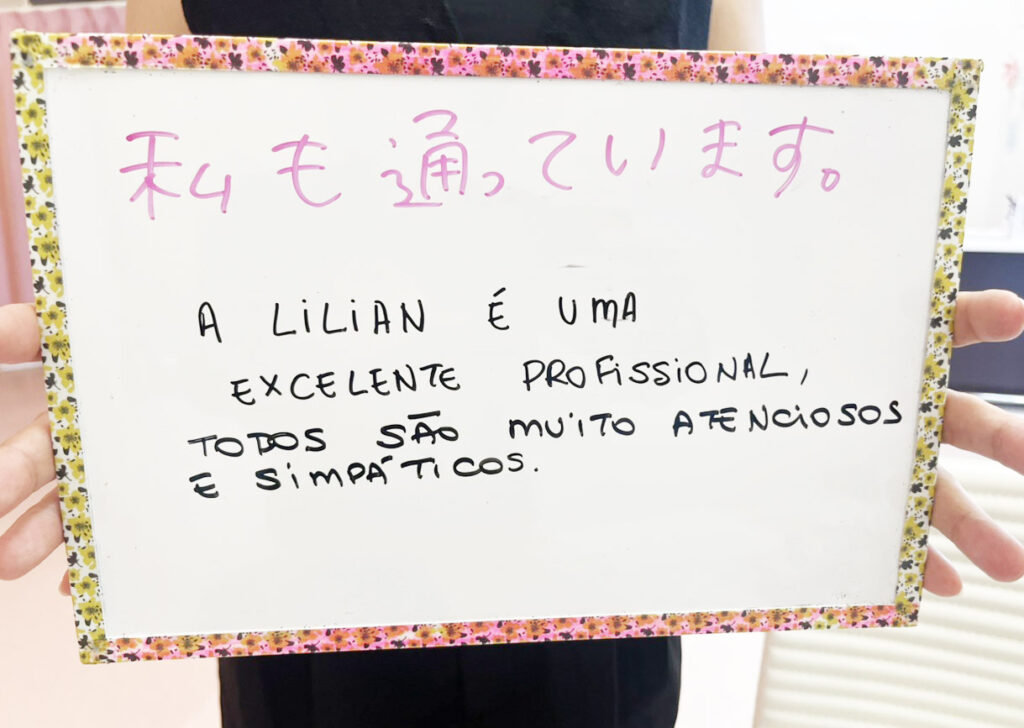 私も通っています。
A LILIAN É UMA
EXCELENTE PROFISSIONAL,
TODOS SÃO MUITO ATENCIOSOS
E SIMPÁTICOS.